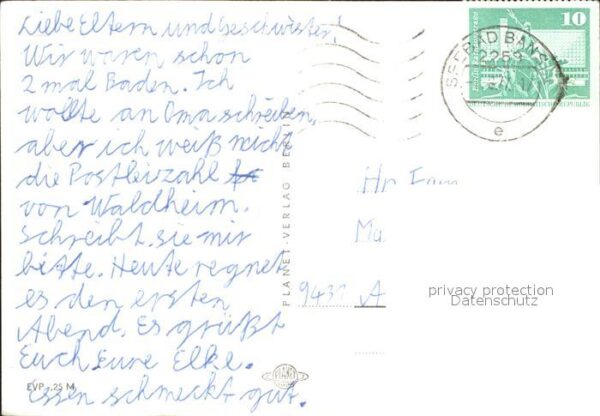 Liebe Eltern und Geschwister!
Wir waren schon
2 mal Baden. Ich
wollte an Oma schreiben,
aber ich weiß nicht
die Postleizahl
von Waldheim.
Schreibt sie mir
bitte. Heute regnet
es den ersten
Abend. Es grüßt
Euch Eure Elke.
Essen schmeckt gut.
EVP -,25 M
PLANET-VERLAG BERLIN
PLANET
10
SEEBAD BANSIN
2255
e
DEUTSCHE DEMOKRATISCHE REPUBLIK
Ma
A
privacy protection
Datenschutz